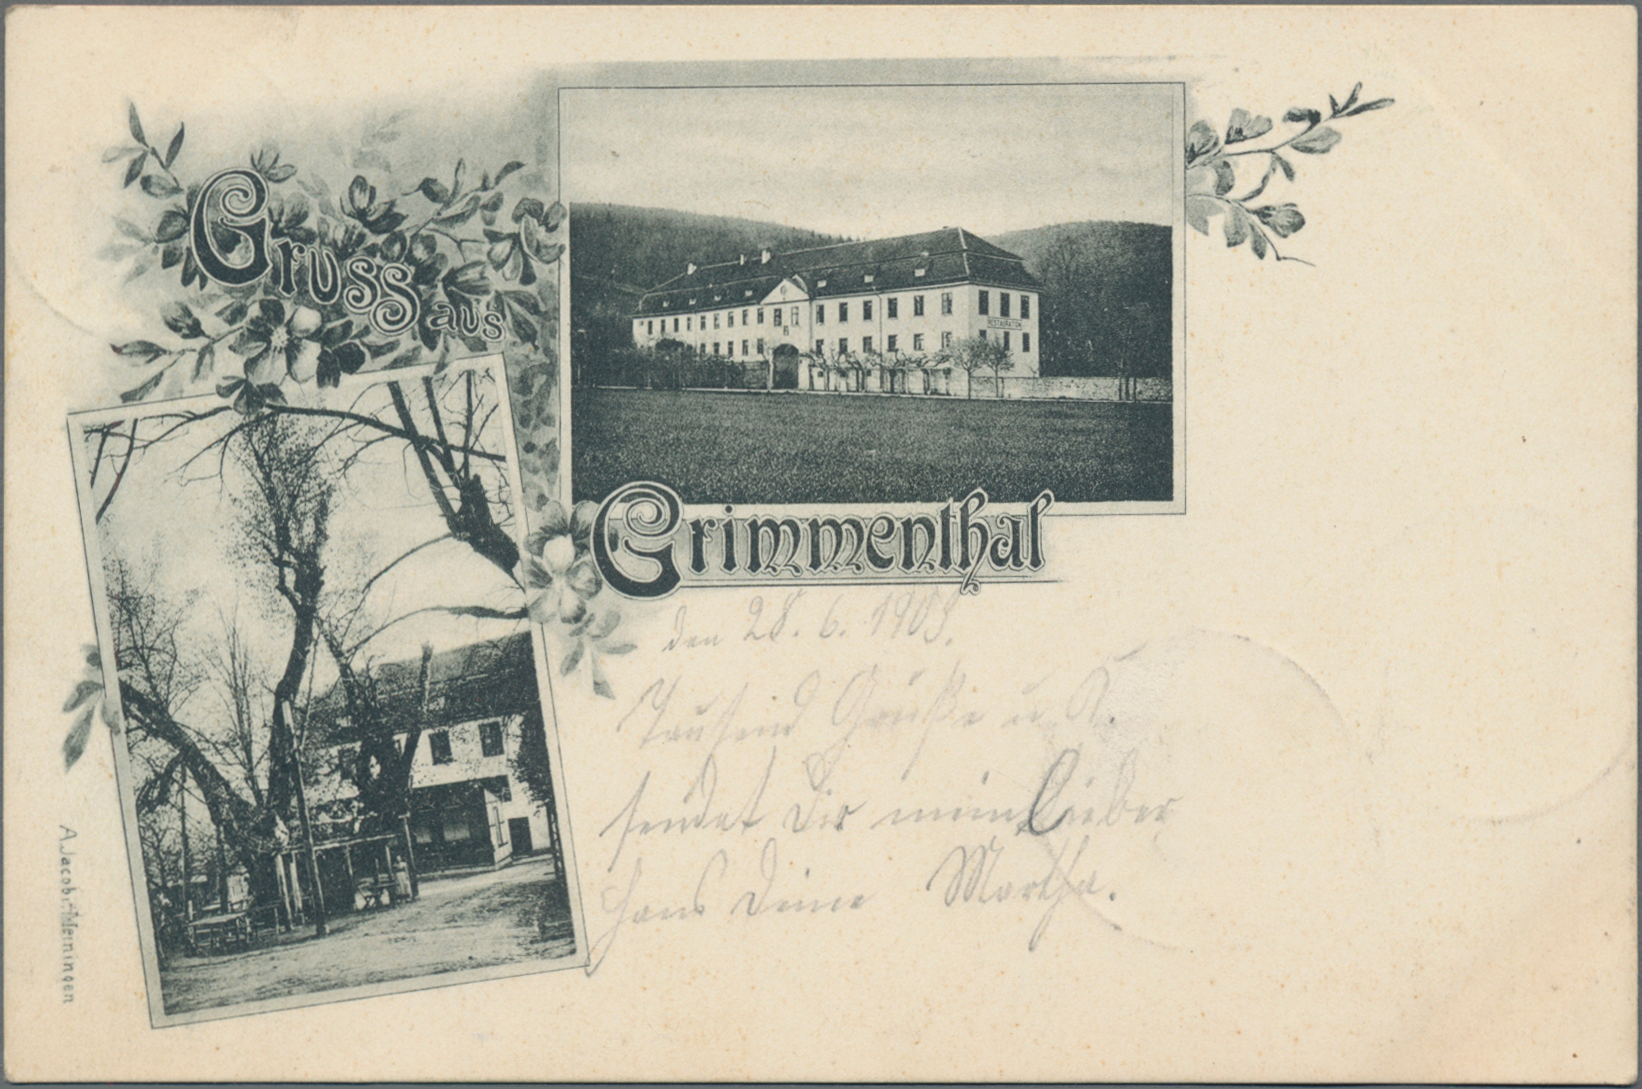 Gruss aus
RESTAURATION
Grimmenthal
den 28. 6. 1903.
Tausend Grüße u. K.
sendet Dir mein lieber
Hans Deine Martha.
A. Jacobi-Meiningen